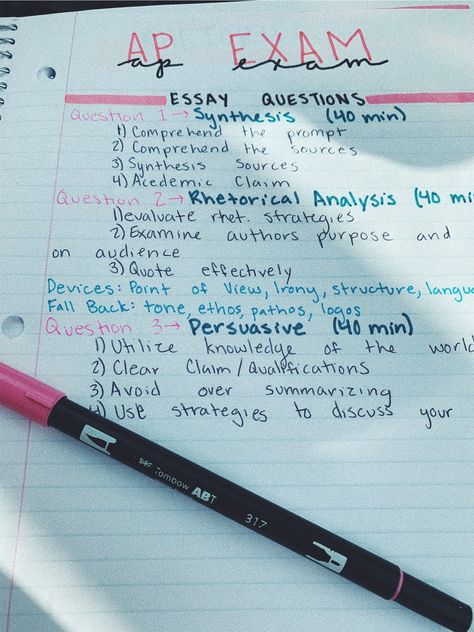 AP EXAM
ap exam
ESSAY QUESTIONS
Question 1 → Synthesis (40 min)
1) Comprehend the prompt
2) Comprehend the sources
3) Synthesis sources
4) Acedemic Claim
Question 2 → Rhetorical Analysis (40 mi
1) evaluate rhet. strategies
2) Examine authors purpose and
on audience
3) Quote effectively
Devices: Point of View, Irony, structure, langu
Fall Back: tone, ethos, pathos, logos
Question 3 → Persuasive (40 min)
1) Utilize knowledge of the world
2) Clear Claim/Qualifications
3) Avoid over summarizing
4) Use strategies to discuss your
Tombow ABT 317